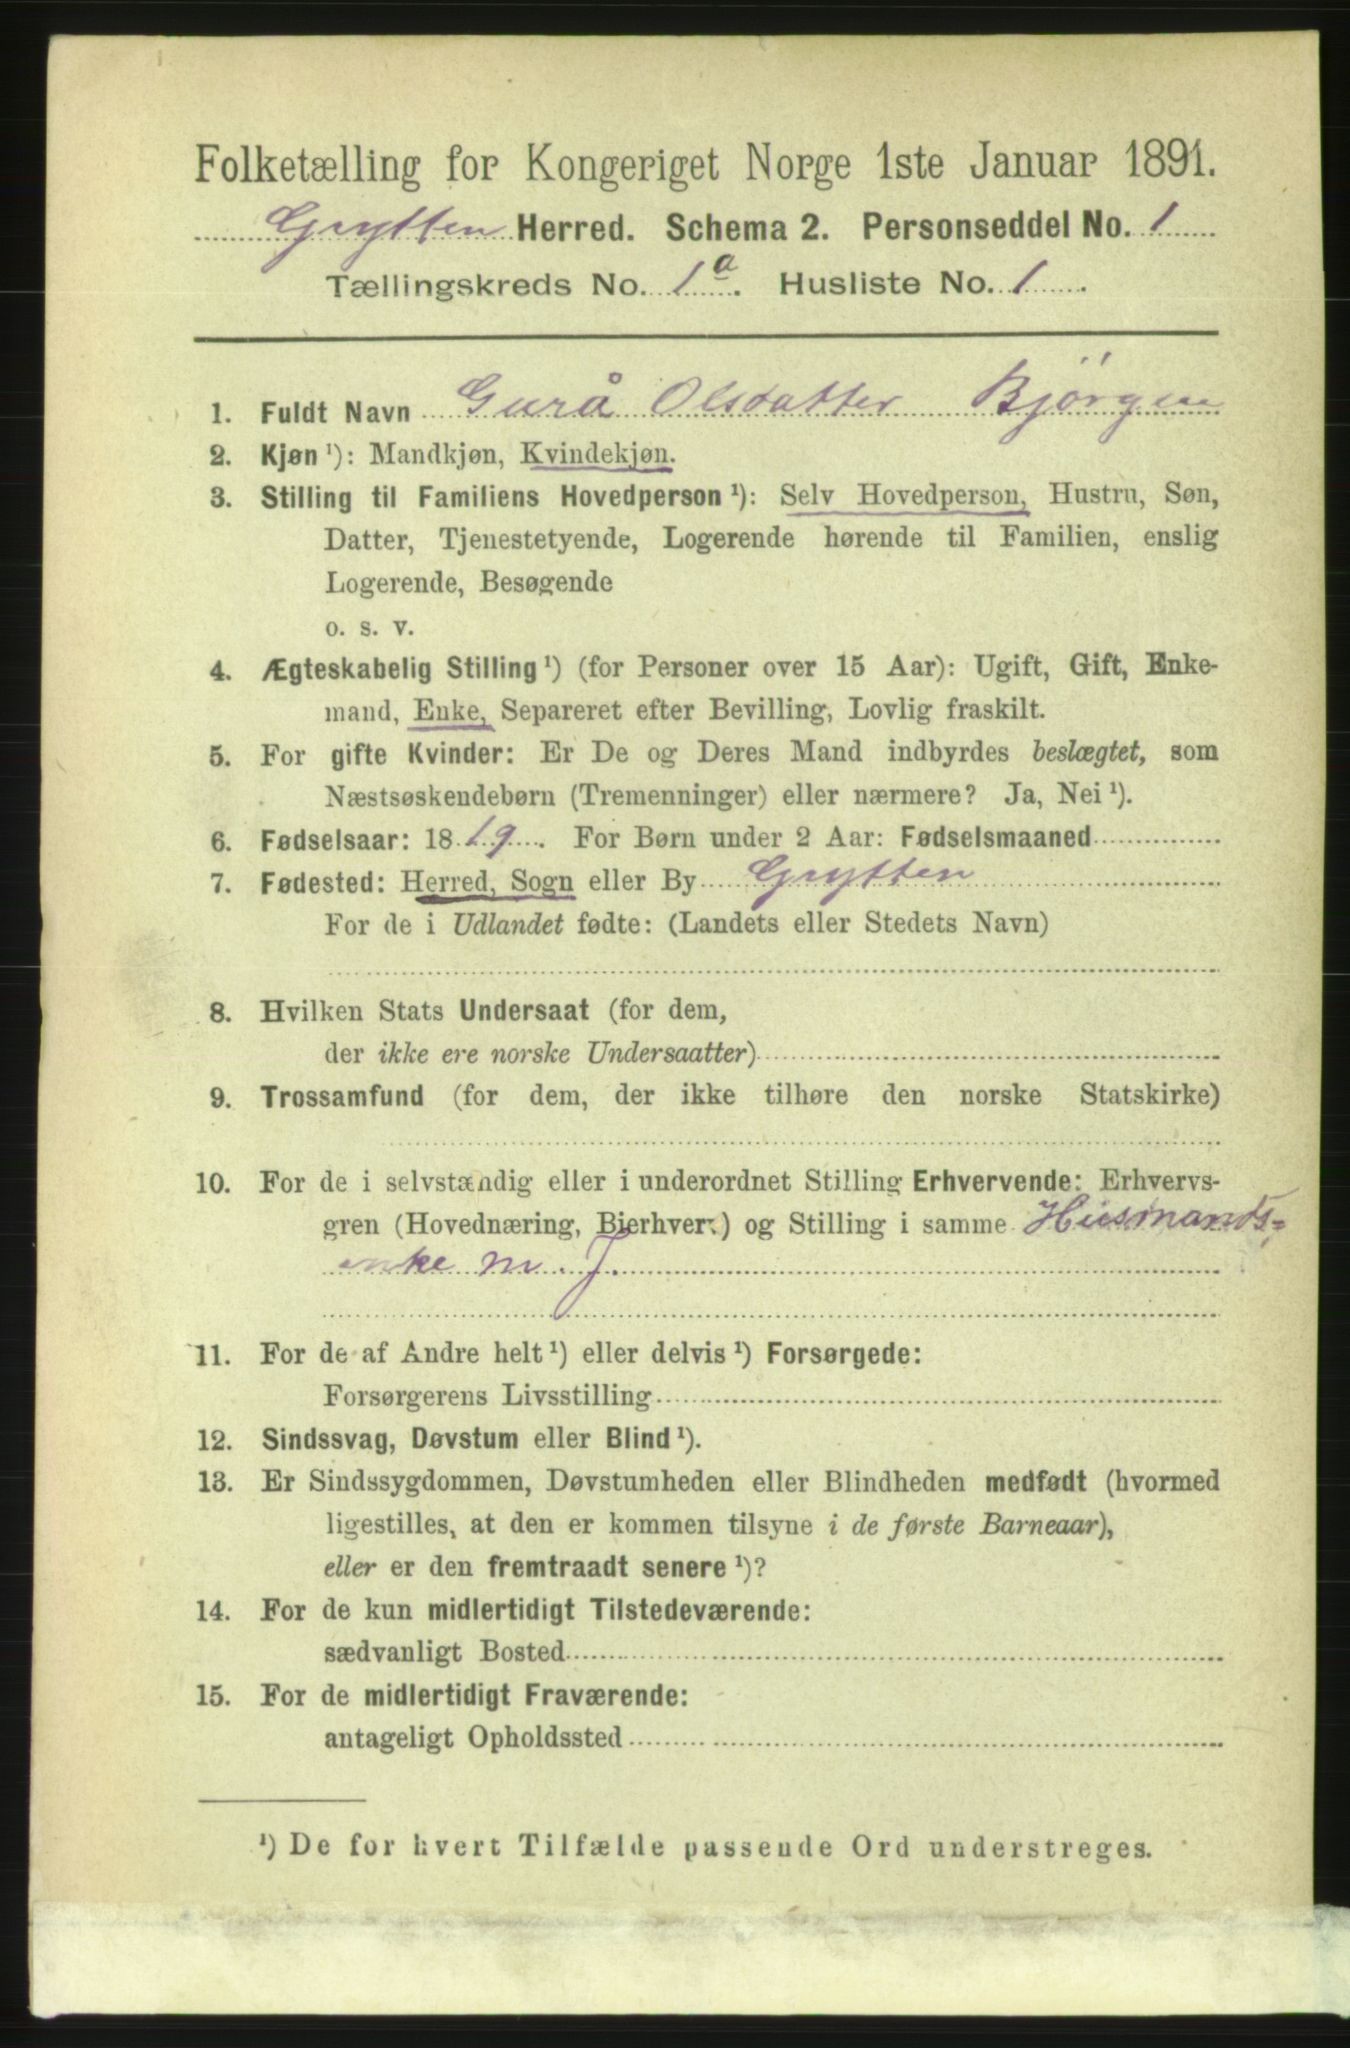 Folketælling for Kongeriget Norge 1ste Januar 1891.
Grytten Herred. Schema 2. Personseddel No. 1
Tællingskreds No. 1a. Husliste No. 1.
1. Fuldt Navn Gurå Olsdatter Bjørgen
2. Kjøn ¹): Mandkjøn, Kvindekjøn.
3. Stilling til Familiens Hovedperson ¹): Selv Hovedperson, Hustru, Søn,
Datter, Tjenestetyende, Logerende hørende til Familien, enslig
Logerende, Besøgende
o. s. v.
4. Ægteskabelig Stilling ¹) (for Personer over 15 Aar): Ugift, Gift, Enke-
mand, Enke, Separeret efter Bevilling, Lovlig fraskilt.
5. For gifte Kvinder: Er De og Deres Mand indbyrdes beslægtet, som
Næstsøskendebørn (Tremenninger) eller nærmere? Ja, Nei ¹).
6. Fødselsaar: 1819. For Børn under 2 Aar: Fødselsmaaned
7. Fødested: Herred, Sogn eller By Grytten
For de i Udlandet fødte: (Landets eller Stedets Navn)
8. Hvilken Stats Undersaat (for dem,
der ikke ere norske Undersaatter)
9. Trossamfund (for dem, der ikke tilhøre den norske Statskirke)
10. For de i selvstændig eller i underordnet Stilling Erhvervende: Erhvervs-
gren (Hovednæring, Bierhverv) og Stilling i samme Husmands-
enke m. J.
11. For de af Andre helt ¹) eller delvis ¹) Forsørgede:
Forsørgerens Livsstilling
12. Sindssvag, Døvstum eller Blind ¹).
13. Er Sindssygdommen, Døvstumheden eller Blindheden medfødt (hvormed
ligestilles, at den er kommen tilsyne i de første Barneaar),
eller er den fremtraadt senere ¹)?
14. For de kun midlertidigt Tilstedeværende:
sædvanligt Bosted
15. For de midlertidigt Fraværende:
antageligt Opholdssted
¹) De for hvert Tilfælde passende Ord understreges.